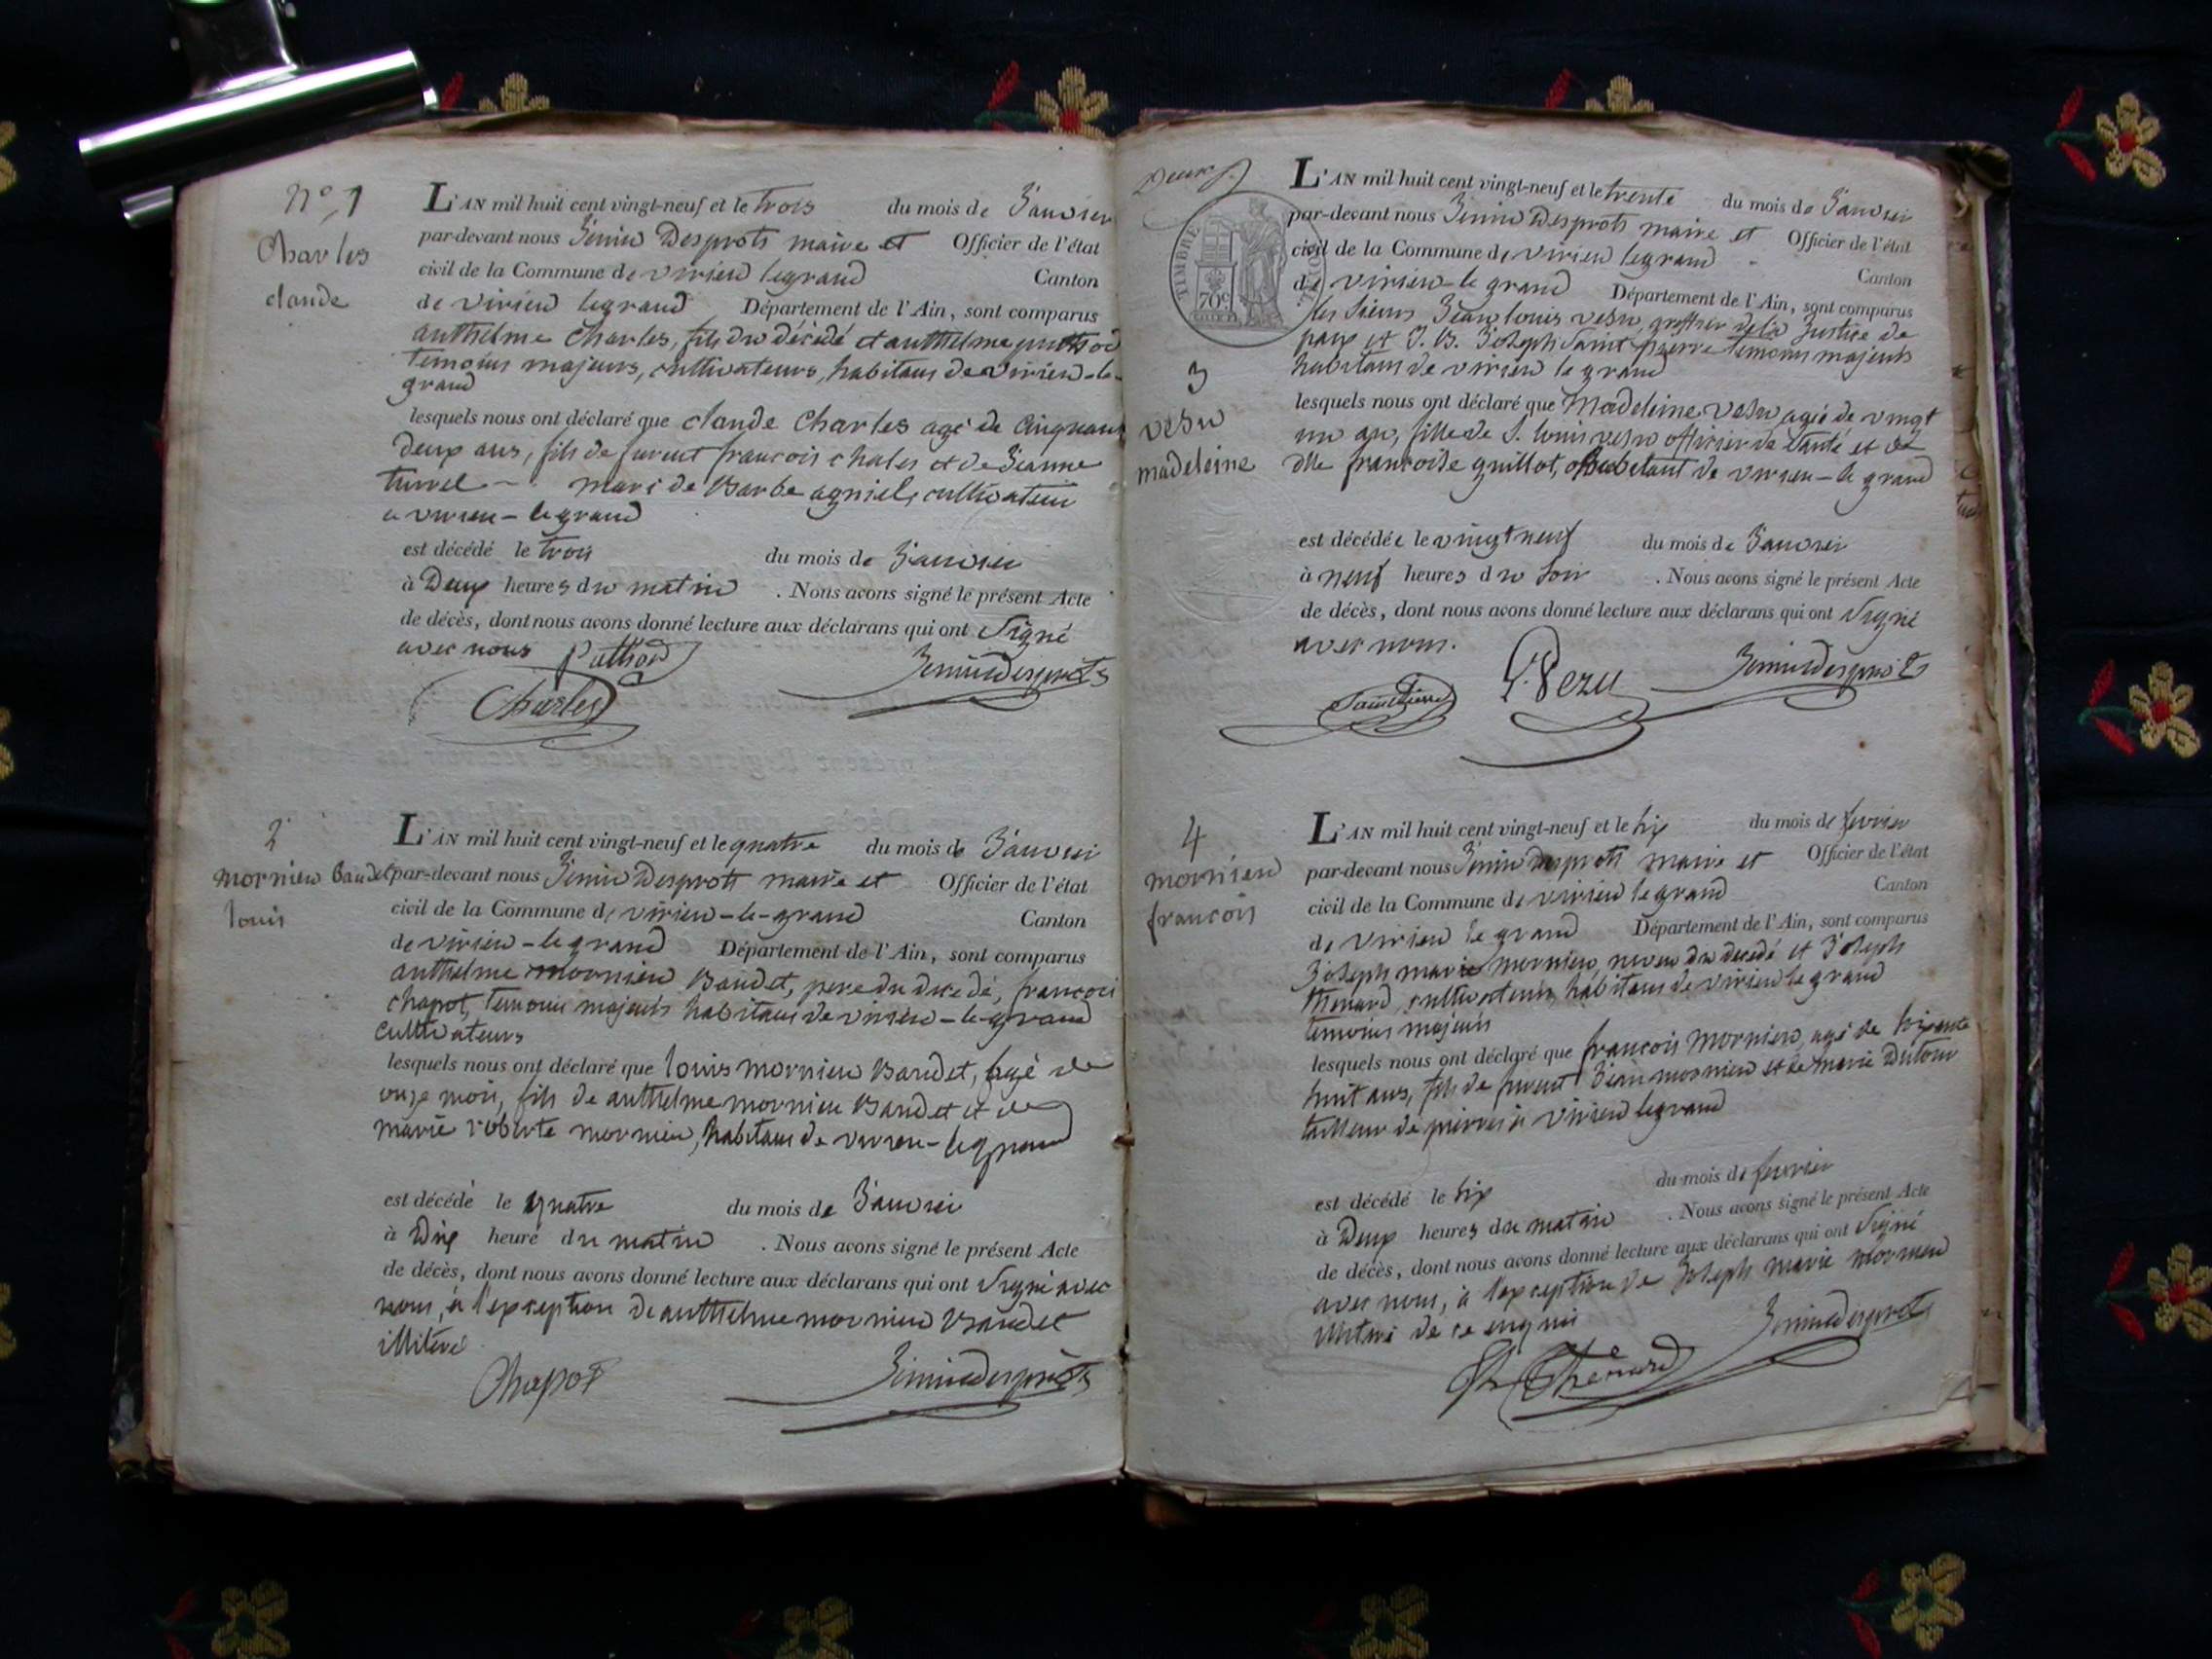 N°, 1
Charles
claude
L'AN mil huit cent vingt-neuf et le trois du mois de Janvier
par-devant nous Jenin Desprots maire et Officier de l'état
civil de la Commune de virieu legrand Canton
de virieu legrand Département de l'Ain, sont comparus
anthelme Charles, fils du décédé et anthelme puthod
temoins majeurs, cultivateurs, habitans de virieu-le-
grand
lesquels nous ont déclaré que claude Charles agé de Cinquante
deux ans, fils de furent francois chales et de Jeanne
turrel - mari de Barbe agniel, cultivateur
a virieu-legrand
est décédé le trois du mois de Janvier
à Deux heures du matin . Nous avons signé le présent Acte
de décès, dont nous avons donné lecture aux déclarans qui ont signé
avec nous Puthod
Charles Jenindesprots
2
mornieu Baudet
louis
L'AN mil huit cent vingt-neuf et le quatre du mois de Janvier
par-devant nous Jenin Desprots maire et Officier de l'état
civil de la Commune de virieu-le-grand Canton
de virieu-legrand Département de l'Ain, sont comparus
anthelme mornieu Baudet, pere du decedé, francois
chapot, temoins majeurs habitans de virieu-le-grand
cultivateurs
lesquels nous ont déclaré que louis mornieu Baudet, agé de
onze mois, fils de anthelme mornieu Baudet et de
marie mornieu, habitans de virieu-legrand
est décédé le quatre du mois de Janvier
à Dix heure du matin . Nous avons signé le présent Acte
de décès, dont nous avons donné lecture aux déclarans qui ont signé avec
nous, à l'exception de anthelme mornieu Baudet
illiteré
Chapot Jenindesprots
Deux
TIMBRE
70c
3
vesu
madeleine
L'AN mil huit cent vingt-neuf et le trente du mois de Janvier
par-devant nous Jenin Desprots maire et Officier de l'état
civil de la Commune de virieu legrand Canton
de virieu-le grand Département de l'Ain, sont comparus
les sieurs Jean louis vesu, greffier de la Justice de
paix et J. B. Joseph Saint-pierre temoins majeurs
habitans de virieu le grand
lesquels nous ont déclaré que Madeleine vesu agée de vingt
un an, fille de S. louis vesu officier de santé et de
dlle francoise guillot, habitant de virieu-le grand
est décédée le vingt neuf du mois de Janvier
à neuf heures du soir . Nous avons signé le présent Acte
de décès, dont nous avons donné lecture aux déclarans qui ont signé
avec nous.
SaintPierre L. Vezu Jenindesprots
4
mornieu
francois
L'AN mil huit cent vingt-neuf et le six du mois de fevrier
par-devant nous Jenin desprots maire et Officier de l'état
civil de la Commune de virieu legrand Canton
de virieu le grand Département de l'Ain, sont comparus
Joseph marie mornieu, neveu du decedé et Joseph
thenard, cultivateurs, habitans de virieu le grand
temoins majeurs
lesquels nous ont déclaré que francois mornieu, agé de soixante
huit ans, fils de furent Jean mornieu et de marie Dutour
tailleur de pierres à virieu legrand
est décédé le six du mois de fevrier
à Deux heures du matin . Nous avons signé le présent Acte
de décès, dont nous avons donné lecture aux déclarans qui ont signé
avec nous, à l'exception de Joseph marie mornieu
illiteré de ce enquis
Jh Thenard Jenindesprots